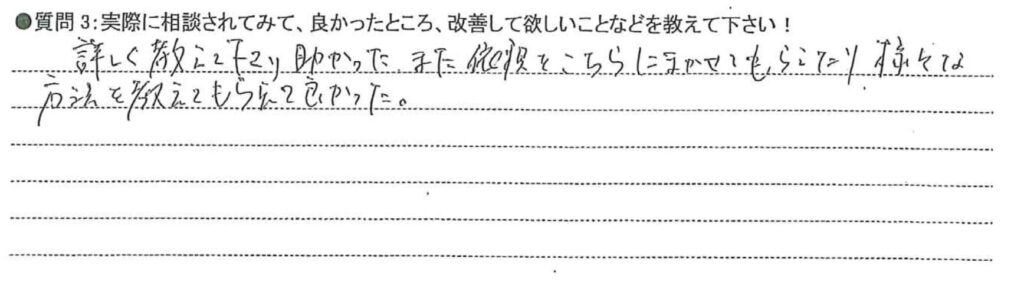 ●質問3:実際に相談されてみて、良かったところ、改善して欲しいことなどを教えて下さい!
詳しく教えて下さり助かった。また依頼をこちらにまかせてもらえたり様々な
方法を教えてもらえて良かった。